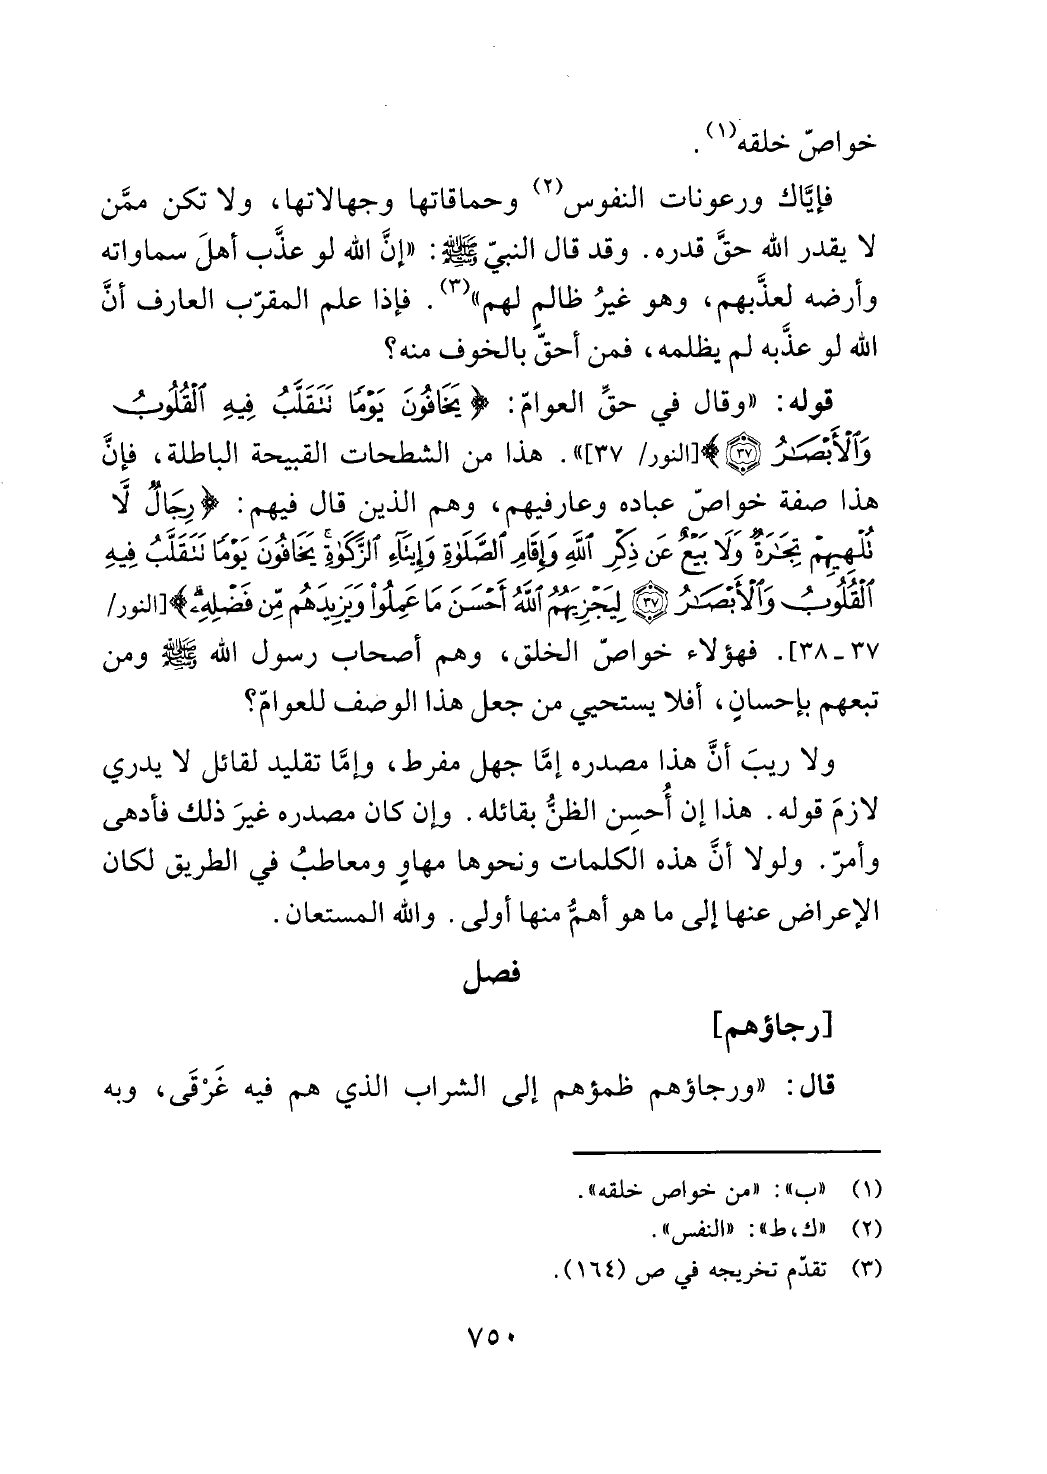 خواصّ خلقه(١).
فإيَّاك ورعونات النفوس(٢) وحماقاتها وجهالاتها، ولا تكن ممَّن
لا يقدر الله حقَّ قدره. وقد قال النبيّ ﷺ: «إنَّ الله لو عذَّب أهلَ سماواته
وأرضه لعذَّبهم، وهو غيرُ ظالمٍ لهم»(٣). فإذا علم المقرّب العارف أنَّ
الله لو عذَّبه لم يظلمه، فمن أحقّ بالخوف منه؟
قوله: «وقال في حقِّ العوامّ: ﴿يَخَافُونَ يَوْمًا تَتَقَلَّبُ فِيهِ ٱلْقُلُوبُ
وَٱلْأَبْصَٰرُ ٣٧﴾[النور/ ٣٧]». هذا من الشطحات القبيحة الباطلة، فإنَّ
هذا صفة خواصّ عباده وعارفيهم، وهم الذين قال فيهم: ﴿رِجَالٌ لَّا
تُلْهِيهِمْ تِجَٰرَةٌ وَلَا بَيْعٌ عَن ذِكْرِ ٱللَّهِ وَإِقَامِ ٱلصَّلَوٰةِ وَإِيتَآءِ ٱلزَّكَوٰةِ ۙ يَخَافُونَ يَوْمًا تَتَقَلَّبُ فِيهِ
ٱلْقُلُوبُ وَٱلْأَبْصَٰرُ ٣٧ لِيَجْزِيَهُمُ ٱللَّهُ أَحْسَنَ مَا عَمِلُوا۟ وَيَزِيدَهُم مِّن فَضْلِهِۦ ۗ﴾[النور/
٣٧ـ٣٨]. فهؤلاء خواصّ الخلق، وهم أصحاب رسول الله ﷺ ومن
تبعهم بإحسانٍ، أفلا يستحيي من جعل هذا الوصف للعوامّ؟
ولا ريبَ أنَّ هذا مصدره إمَّا جهل مفرط، وإمَّا تقليد لقائل لا يدري
لازمَ قوله. هذا إن أُحسِن الظنُّ بقائله. وإن كان مصدره غيرَ ذلك فأدهى
وأمرّ. ولولا أنَّ هذه الكلمات ونحوها مهاوٍ ومعاطبُ في الطريق لكان
الإعراض عنها إلى ما هو أهمُّ منها أولى. والله المستعان.
فصل
[رجاؤهم]
قال: «ورجاؤهم ظمؤهم إلى الشراب الذي هم فيه غَرْقَى، وبه
(١) «ب»: «من خواص خلقه».
(٢) «ك، ط»: «النفس».
(٣) تقدّم تخريجه في ص (١٦٤).
٧٥٠